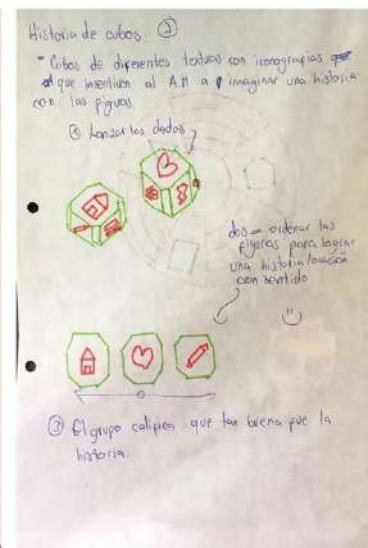 Historia de cubos: ②
- Cubos de diferentes texturas con iconografias
que insentiven al A.M a imaginar una historia
con las figuras
① Lanzar los dados
dos = ordenar las
figuras para lograr
una historia/oración
con sentido
③ El grupo califica que tan buena fue la
historia.